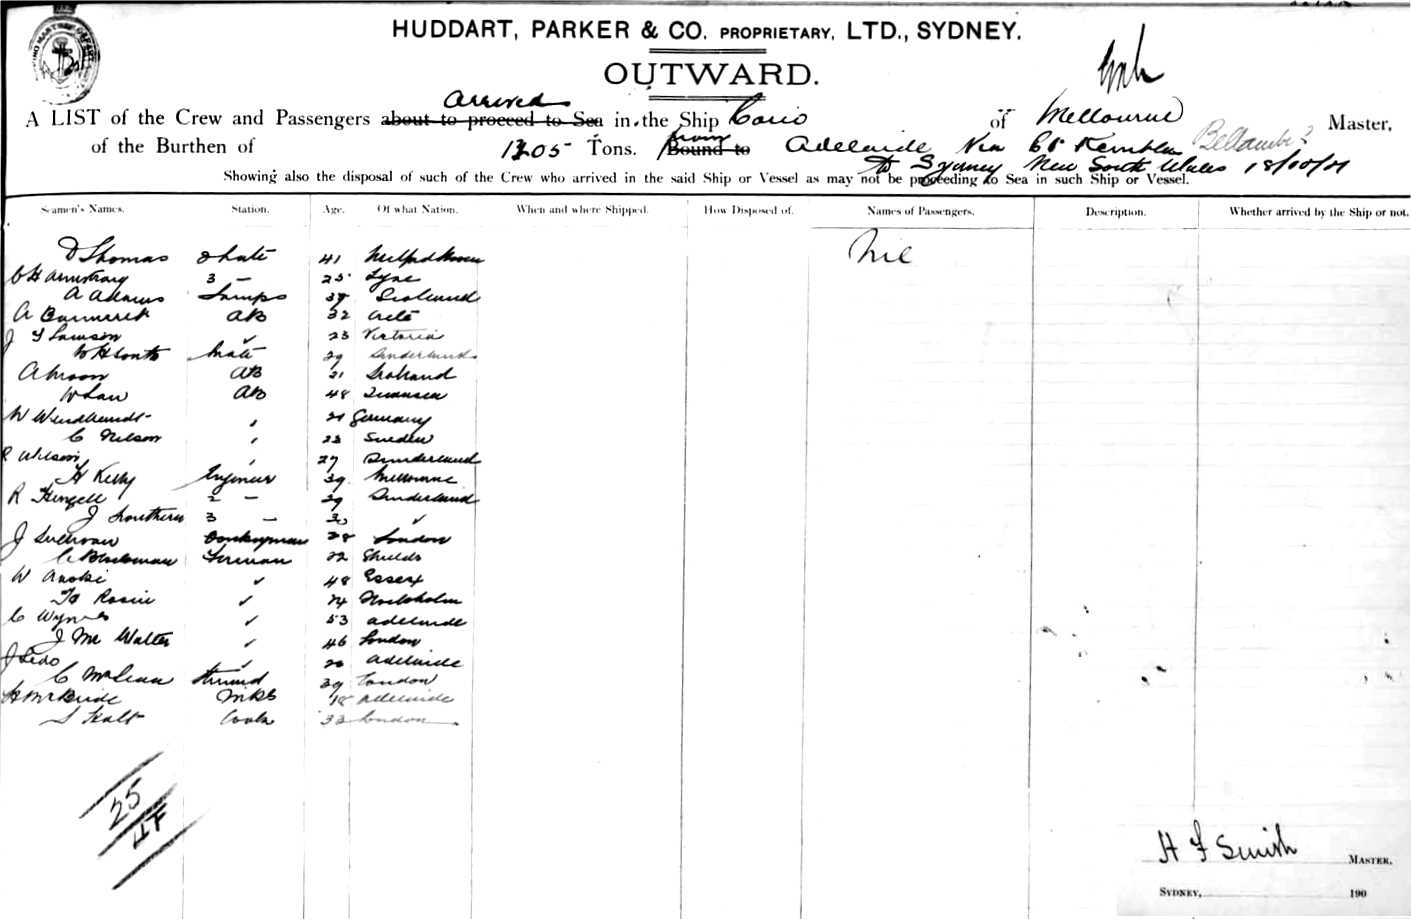 HUDDART, PARKER & CO. PROPRIETARY, LTD., SYDNEY.
OUTWARD.
arrived
A LIST of the Crew and Passengers about to proceed to Sea in the Ship of Melbourne Master,
of the Burthen of 1305 Tons. from Bound to Adelaide Via Pt Kembla
to Sydney New South Wales 18/10/01
Showing also the disposal of such of the Crew who arrived in the said Ship or Vessel as may not be proceeding to Sea in such Ship or Vessel.
Seamen's Names. Station. Age. Of what Nation. When and where Shipped. How Disposed of. Names of Passengers. Description. Whether arrived by the Ship or not.
D Thomas 2 Mate 41 Milford Haven Nil
C H Armstrong 3 — 25 Tyne
A Adams Lamps 39 Scotland
A AB 32
J Y Lawson ✓ 23 Victoria
W H Mate 29 Sunderland
A Moon AB 21 Scotland
W Law AB 48 Swansea
W 21 Germany
C Nilson 23 Sweden
R Wilson 27 Sunderland
H Kelly Engineer 39 Melbourne
R 2 — 29 Sunderland
J Southern 3 — ✓
J Sullivan Donkeyman 28 London
C Blackman Fireman 22 Shields
W ✓ 48 Essex
✓ 24 Stockholm
C Wynes ✓ 53 Adelaide
J Mc Walter ✓ 46 London
J ✓ 20 Adelaide
C McLean Steward 39 London
H McBride 18 Adelaide
S Cook 33 London
25
H F Smith MASTER.
SYDNEY, 190